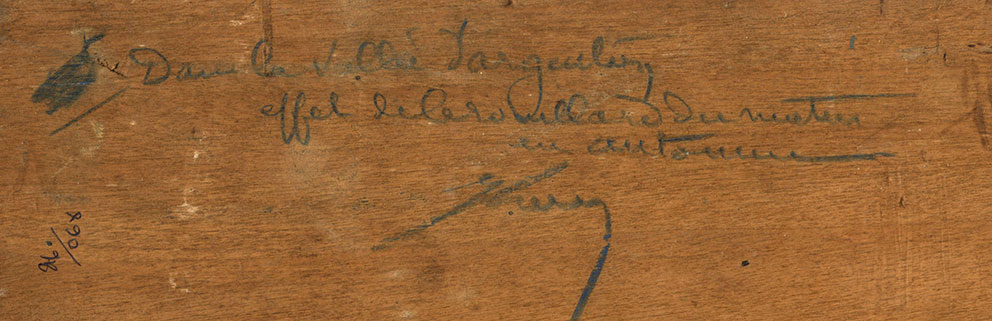 Dans la vallée d'argentan
effet de brouillard du matin
en automne
96/068